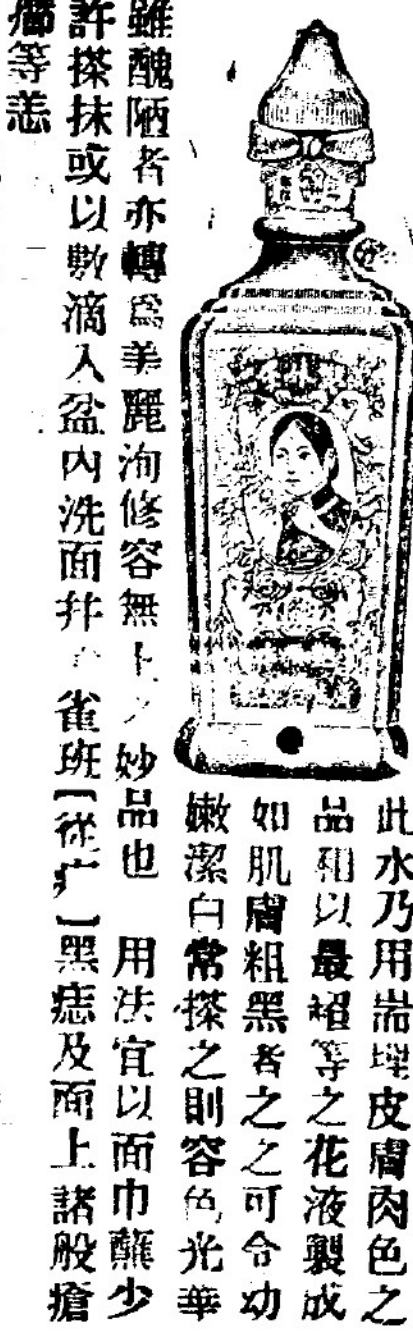 此水乃用耑理皮膚肉色之
品和以最超等之花液製成
如肌膚粗黑者之之可令幼
嫩潔白常搽之則容色光華
雖醜陋者亦轉爲美麗洵修容無上之妙品也 用法宜以面巾蘸少
許搽抹或以數滴入盆內洗面并 雀班【從疒】黑痣及面上諸般瘡
等恙